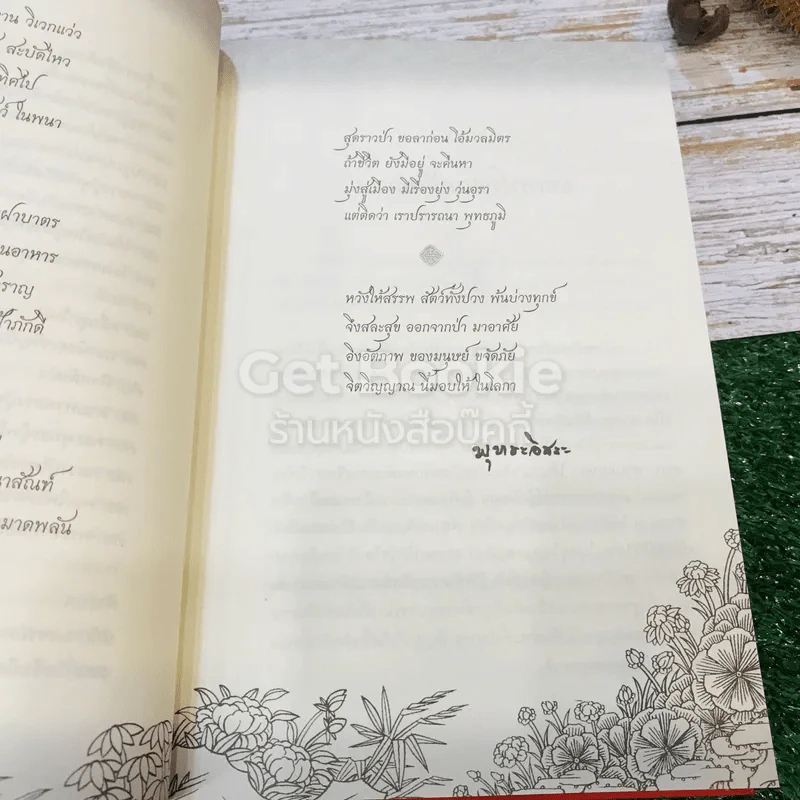 าน วิเวกแว่ว
สะบัดไหว
ทิศไป
ว์ ในพนา
ฝาบาตร
นอาหาร
ราญ
ภักดี
าสัณฑ์
มาดพลัน
สุดราวป่า ขอลาก่อน โอ้มวลมิตร
ถ้าชีวิต ยังมีอยู่ จะคืนหา
มุ่งสู่เมือง มีเรื่องยุ่ง วุ่นอุรา
แต่ติดว่า เราปรารถนา พุทธภูมิ
หวังให้สรรพ สัตว์ทั้งปวง พ้นบ่วงทุกข์
จึงสละสุข ออกจากป่า มาอาศัย
อิงอัตภาพ ของมนุษย์ ขจัดภัย
จิตวิญญาณ นี้มอบให้ ในโลกา
พุทธะอิสระ
Get Bookie
ร้านหนังสือบุ๊คกี้